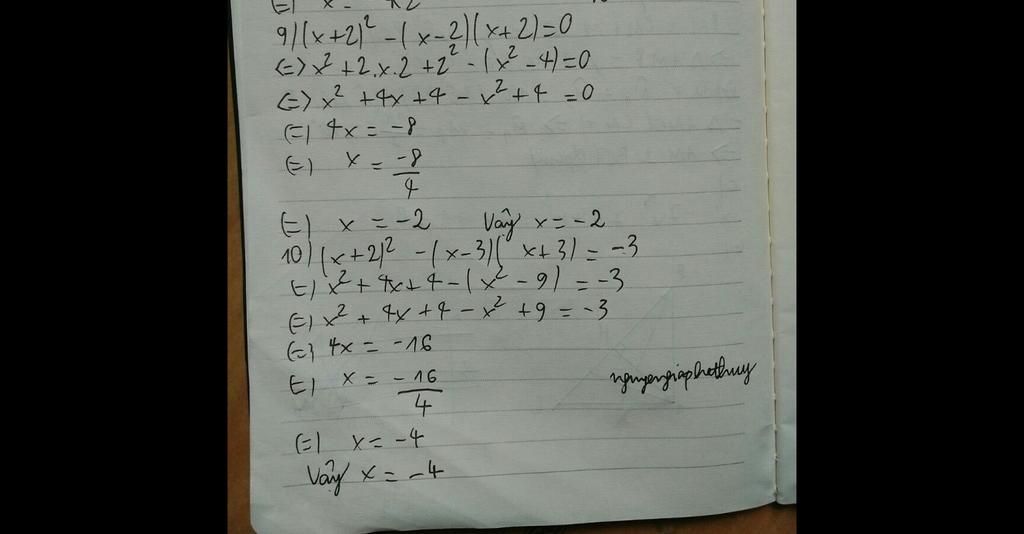 9) (x+2)² - (x-2)(x+2)=0
<=> x² + 2.x.2 + 2² - (x² - 4)=0
<=> x² + 4x + 4 - x² + 4 = 0
(=) 4x = -8
(=) x = -8/4
(=) x = -2 Vậy x = -2
10) (x+2)² - (x-3)(x+3) = -3
(=) x² + 4x + 4 - (x² - 9) = -3
(=) x² + 4x + 4 - x² + 9 = -3
(=) 4x = -16
(=) x = -16/4
nguyengiaphothuy
(=) x = -4
Vậy x = -4